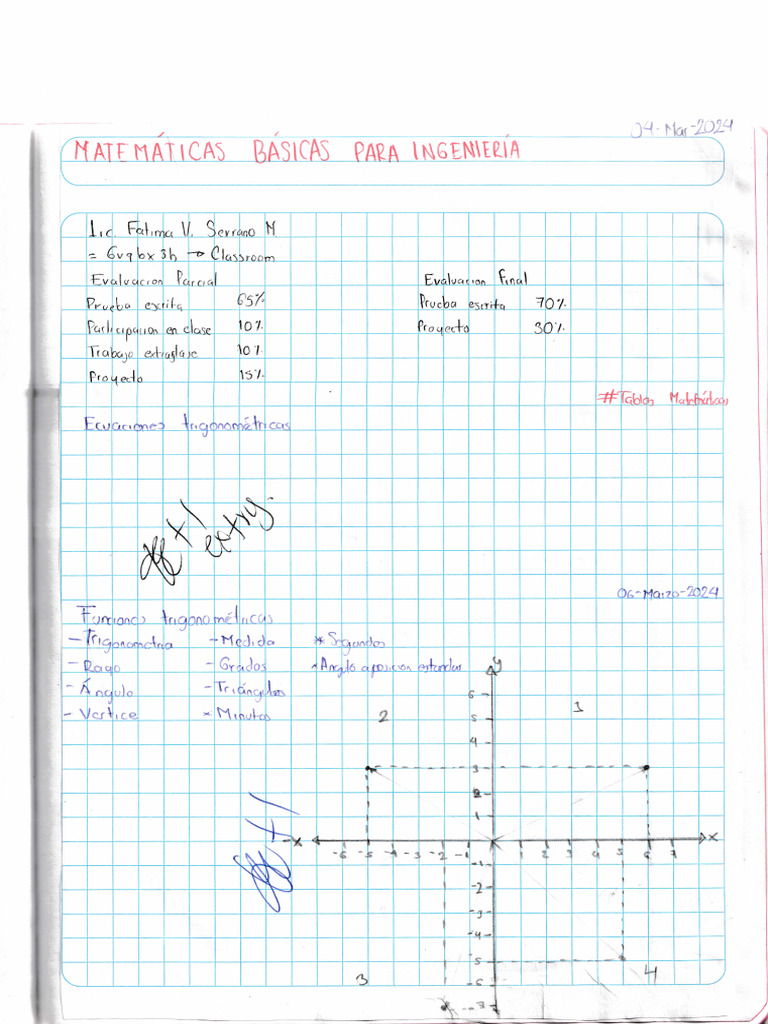 04-Mar-2024
MATEMÁTICAS BÁSICAS PARA INGENIERÍA
Lic. Fatima V. Serrano M
= 6vq6x3h → Classroom
Evaluacion Parcial
Evaluacion Final
Prueba escrita 65%
Prueba escrita 70%
Participacion en clase 10%
Proyecto 30%
Trabajo extraclase 10%
Proyecto 15%
#Tablas Matemáticas
Ecuaciones trigonométricas
+1
06-Marzo-2024
Funciones trigonométricas
- Trigonometria - Medida * Segundos
- Rayo - Grados * Angulo a posicion estandar
- Ángulo - Triángulos
- Vertice * Minutos
y
6
1
2
5
4
3
2
1
+1
-x x
-6 -5 -4 -3 -2 -1 1 2 3 4 5 6 7
-1
-2
-3
-4
-5
3 -6 4